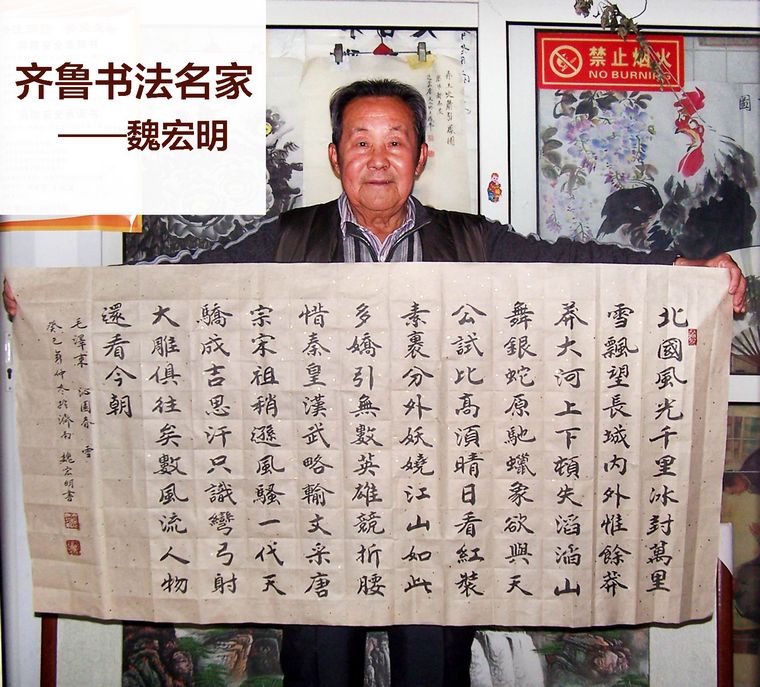 齐鲁书法名家
——魏宏明
禁止烟火
NO BURNING
北國風光千里冰封萬里
雪飄望長城内外惟餘莽
莽大河上下頓失滔滔山
舞銀蛇原馳蠟象欲與天
公試比高須晴日看紅裝
素裹分外妖嬈江山如此
多嬌引無數英雄競折腰
惜秦皇漢武略輸文采唐
宗宋祖稍遜風騷一代天
驕成吉思汗只識彎弓射
大雕俱往矣數風流人物
還看今朝
毛澤東 沁園春 雪
癸巳年仲冬於濟南 魏宏明書